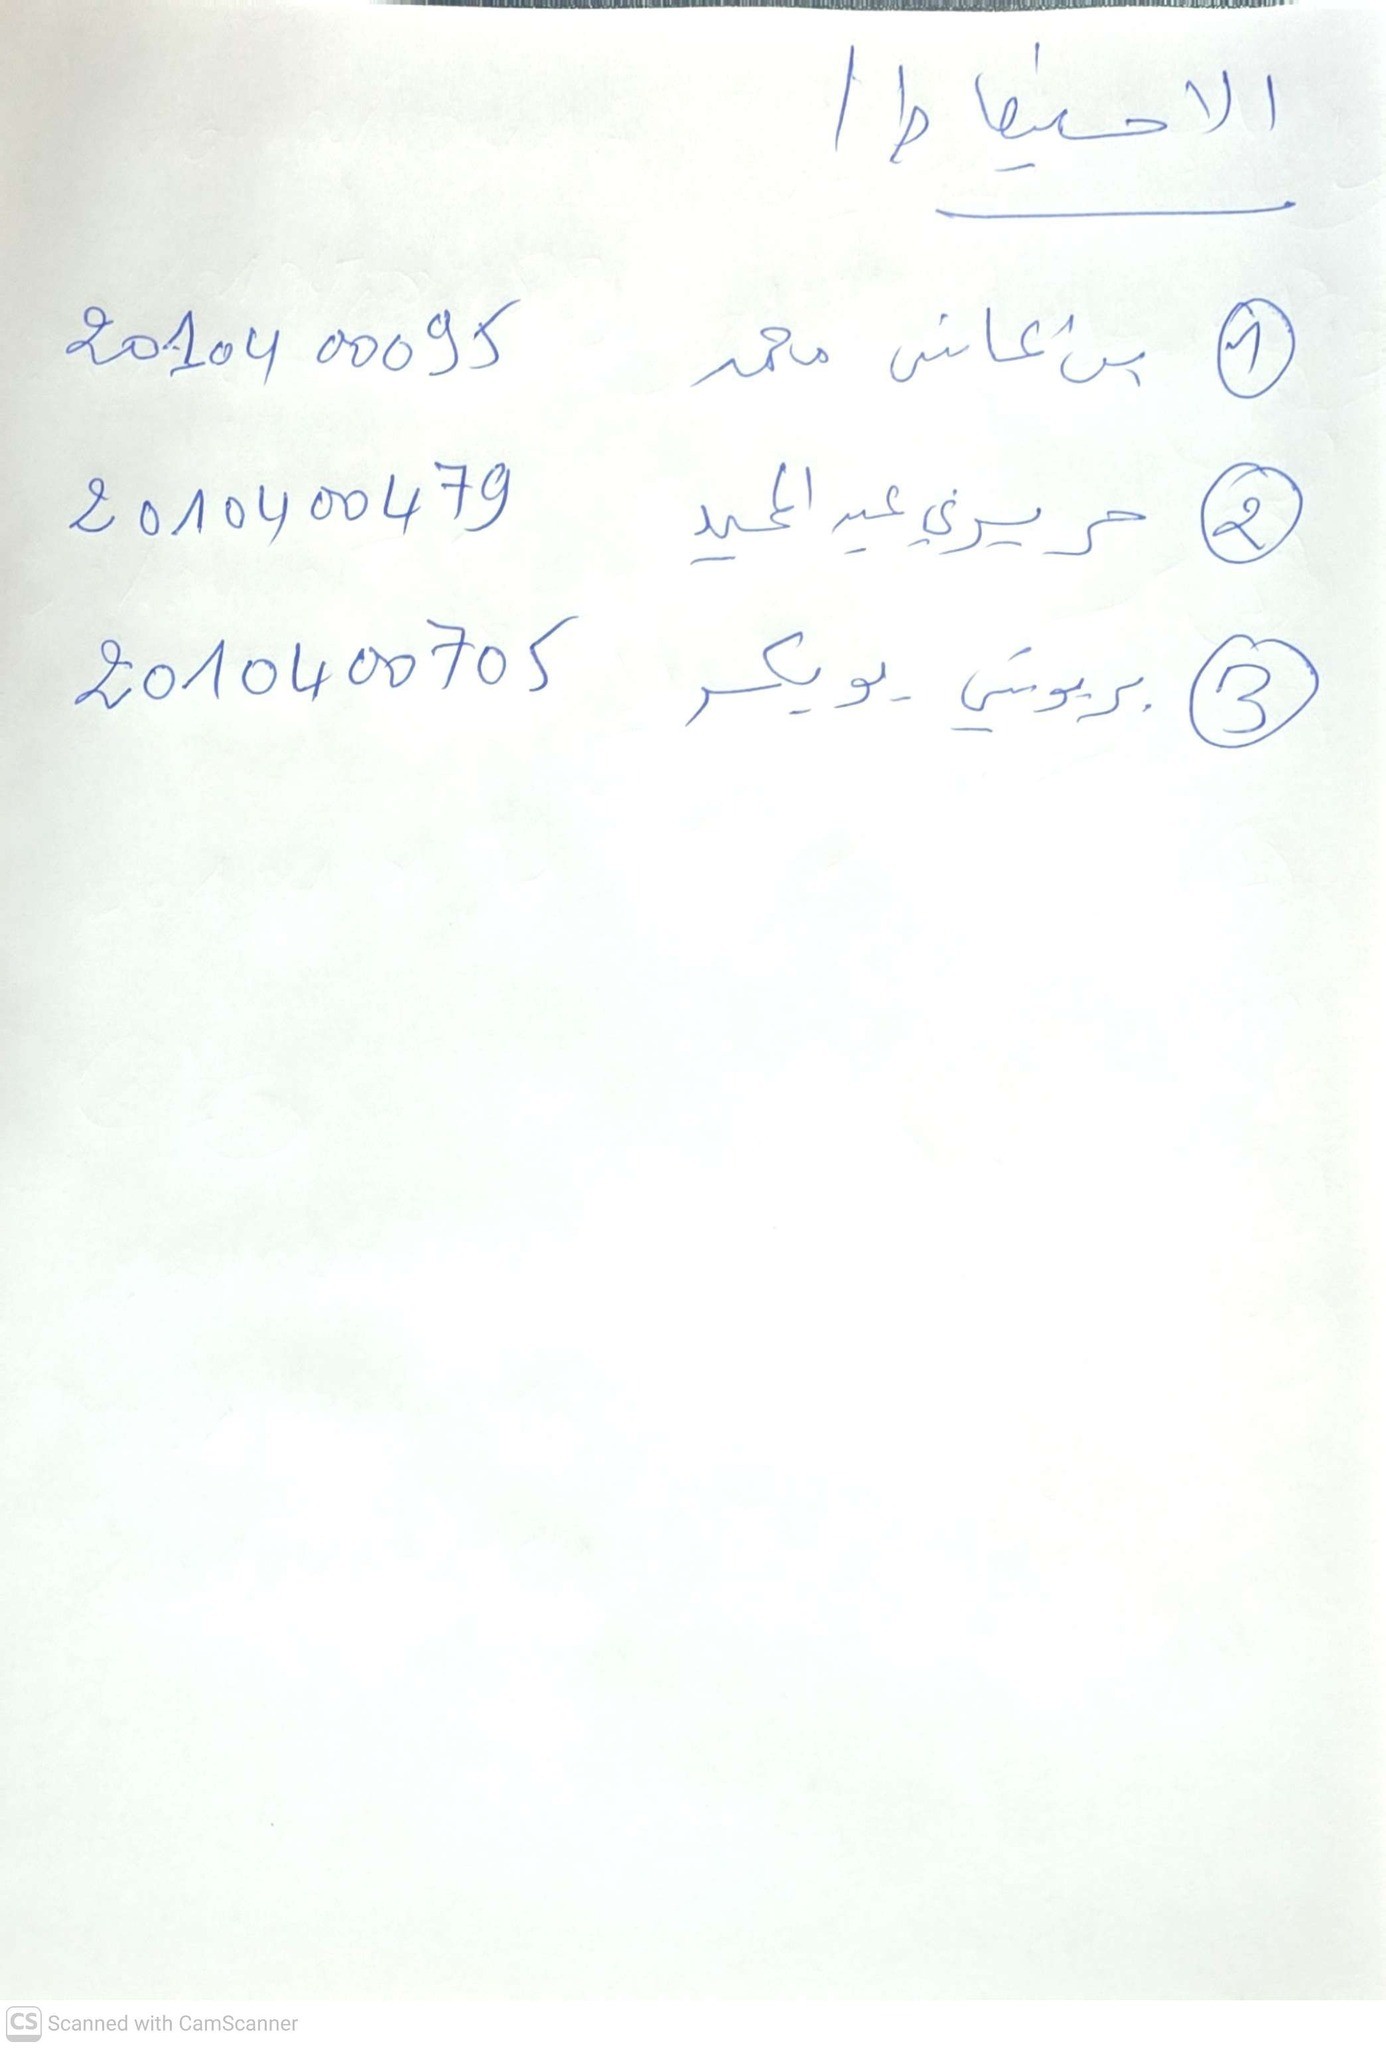 الاحتياط /
① بن عائش محمد 2010400095
② حريري عبد المجيد 2010400479
③ بريوشي بوبكر 2010400705
CS Scanned with CamScanner